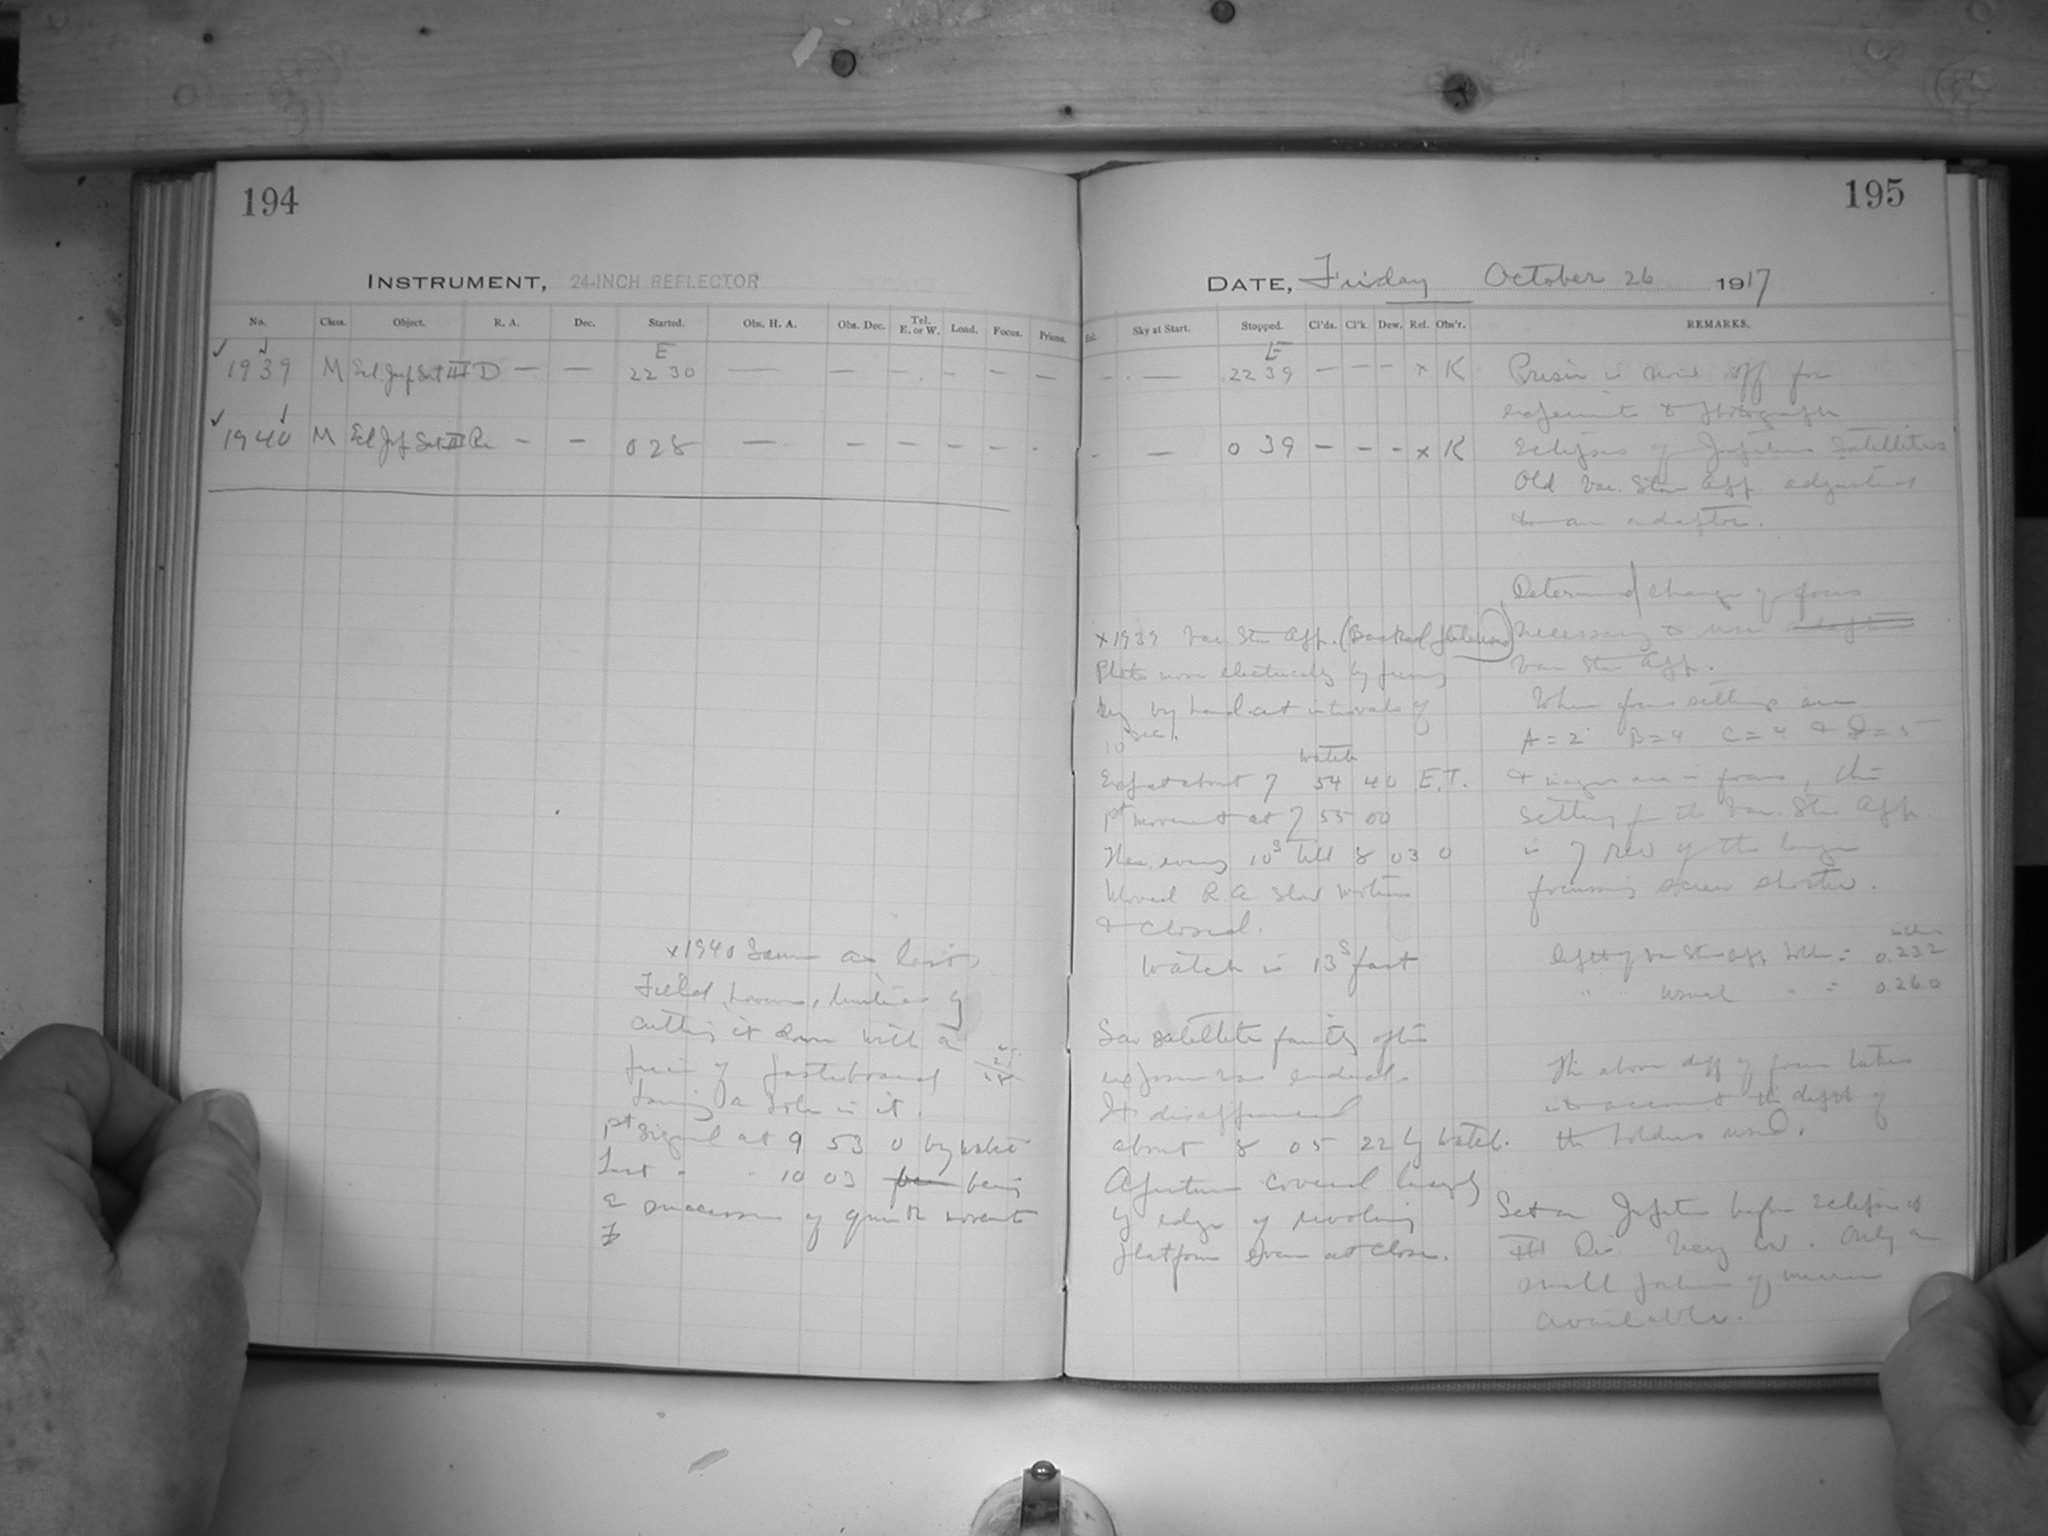 194
INSTRUMENT, 24-INCH REFLECTOR
No. Class. Object. R. A. Dec. Started. Obs. H. A. Obs. Dec. Tel. E. or W. Load. Focus. Prisms.
E
1939 M Ecl. Jup. Sat III D — — 22 30 — — — — — —
1940 M Ecl Jup Sat III Re — — 0 28 — — — — —
x1940 Same as last
Field, however, limited by
cutting it down with a
piece of pasteboard
having a hole in it.
1st signal at 9 53 0 by watch
Last " " 10 03 being
a succession of quick movents
195
DATE, Friday October 26 1917
Sky at Start. Stopped. Cl'ds. Cl'k. Dew. Ref. Obs'r. REMARKS.
E
— 22 39 — — — x K Prism is off for
experiments to photograph
— 0 39 — — — x K Eclipses of Jupiters Satellites
Old Var. Star App. adjusted
to an adapter.
Determined change of focus
x1939 Var Star App. (Backed plate used) necessary to use
Plate move electrically by pressing Var Star App.
key by hand at intervals of When focus settings are
10 sec. A = 2 B = 4 C = 4 & D = 5
watch
Exp at about 7 54 40 E.T. & images are in focus, the
1st movement at 7 55 00 setting for the Var. Star App
Then every 10s till 8 03 0 is 7 rev of the large
Moved R A slow motion focussing screw shorter.
& closed.
Watch is 13s fast
inches
Depth of Var Star App holder = 0.232
" " usual " = 0.260
Saw satellite faintly after
exposure was ended. The above diff of focus takes
It disappeared into account the depth of
about 8 05 22 by watch. the holders used.
Aperture covered largely
by edge of revolving Set on Jupiter before Eclipse of
platform even at close. III Dis Very low. Only a
small portion of mirror
available.